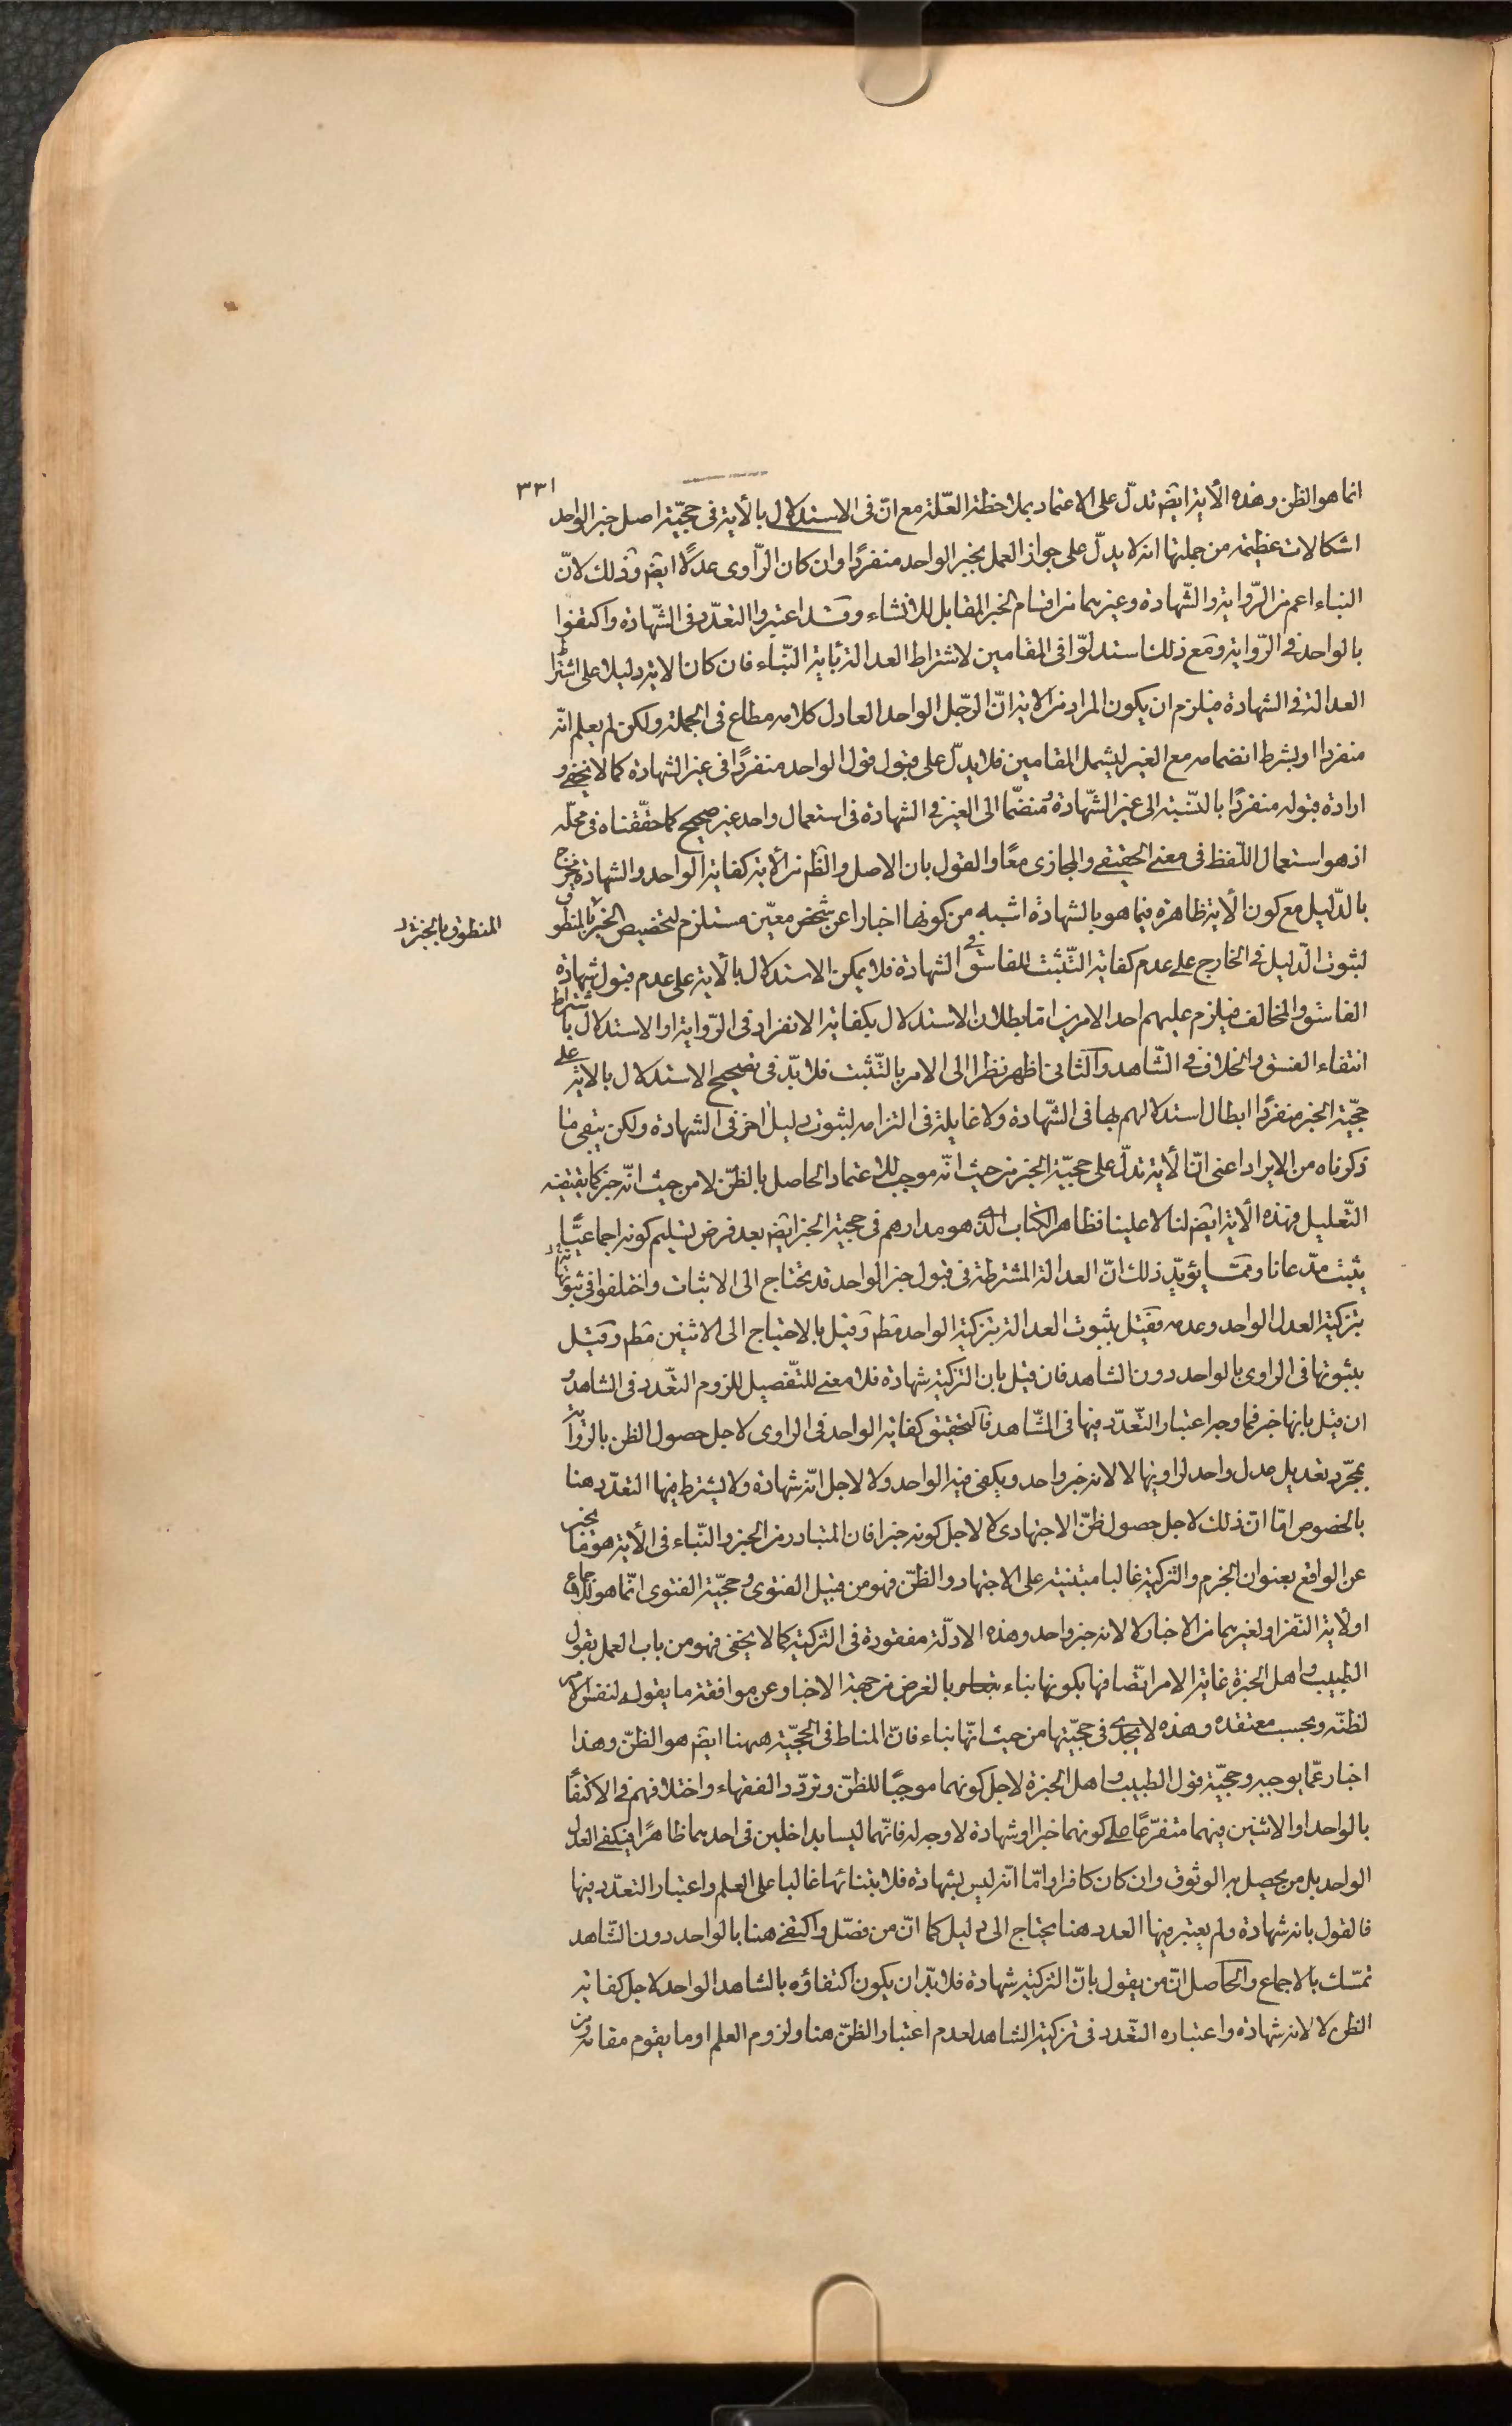 ٣٣١
انما هو الظن وهذه الأية ايضم تدلّ على الاعتماد بملاحظة العلّة مع انّ فى الاستدلال بالأية فى حجّية اصل خبر الواحد
اشكالات عظيمة من جملتها انه لا يدلّ على جواز العمل بخبر الواحد منفردًا وان كان الرّاوى عدلًا ايضم وذلك لانّ
النباء اعم من الرّواية والشّهادة وغيرهما من اقسام الخبر المقابل للانشاء وقد اعتبروا التعدّد فى الشّهادة واكتفوا
بالواحد فى الرّواية ومع ذلك استدلّوا فى المقامين لاشتراط العدالة بأية النّباء فان كان الاية دليلا على اشترا
العدالة فى الشهادة فيلزم ان يكون المراد من الاية انّ الرّجل الواحد العادل كلامه مطاع فى الجملة ولكن لم يعلم انّه
منفردا او بشرط انضمامه مع الغير ليشمل المقامين فلا يدلّ على قبول قول الواحد منفردًا فى غير الشهادة كما لا يخفى و
ارادة قبوله منفردًا بالنّسبة الى غير الشّهادة ومنضمّا الى الغير فى الشهادة فى استعمال واحد غير صحيح كما حقّقناه فى محلّه
اذ هو استعمال اللّفظ فى معنى الحقيقى والمجازى معًا والقول بان الاصل والظم من الأية كفاية الواحد والشهادة مخرج
بالدّليل مع كون الأية ظاهرة فيما هو بالشهادة اشبه من كونها اخبارا عن شخص معيّن مستلزم لتخصيص الخبر بالمنطوق
المنطوق بالخبر
لثبوت الدّليل فى الخارج على عدم كفاية التّثبت للفاسق فى الشهادة فلا يمكن الاستدلال بالأية على عدم قبول شهادة
الفاسق والمخالف فيلزم عليهم احد الامرين امّا بطلان الاستدلال بكفاية الانفراد فى الرّواية او الاستدلال باشتراط
انتفاء الفسق والخلاف فى الشّاهد والثانى اظهر نظرا الى الامر بالتّثبت فلا بدّ فى تصحيح الاستدلال بالاية على
حجّية الخبر منفردًا ابطال استدلالهم بها فى الشّهادة ولا غايلة فى التزامه لثبوت دليل اخر فى الشهادة ولكن يبقى ما
ذكرناه من الايراد اعنى انّ الأية تدلّ على حجيّة الخبر من حيث انّه موجب للاعتماد الحاصل بالظنّ لا من حيث انّه خبر كما يقتضيه
التّعليل فهذه الأية ايضم لنا لا علينا فظاهر الكتاب الّذى هو مدارهم فى حجية الخبر ايضم بعد فرض تسليم كونه اجماعيًّا
يثبت مدّعانا وممّا يؤيّد ذلك انّ العدالة المشترطة فى قبول خبر الواحد قد يحتاج الى الاثبات واختلفوا فى ثبوتها
بتزكية العدل الواحد وعدمه فقيل بثبوت العدالة بتزكية الواحد مطم وقيل بالاحتياج الى الاثنين مطم وقيل
بثبوتها فى الراوى بالواحد دون الشاهد فان قيل بان التزكية شهادة فلا معنى للتّفصيل للزوم التعّدد فى الشاهد و
ان قيل بانها خبر فما وجه اعتبار التّعدّد فيها فى الشّاهد فالتحقيق كفاية الواحد فى الراوى لاجل حصول الظن بالرّواية
بمجرّد تعديل عدل واحد لراويها لا لانه خبر واحد ويكفى فيه الواحد ولا لاجل انّه شهادة ولا يشترط فيها التعدّد هنا
بالخصوص امّا انّ ذلك لاجل حصول ظنّ الاجتهادى لا لاجل كونه خبرا فان المتبادر من الخبر والنّباء فى الأية هو ما يخبر
عن الواقع بعنوان الجزم والتزكية غالبا مبتنية على الاجتهاد والظنّ فهو من قبيل الفتوى وحجيّة الفتوى انّما هو للاجماع
او لأية النّفر او لغيرهما من الاخبار لا لانه خبر واحد وهذه الادلّة مفقودة فى التزكية كما لا يخفى فهو من باب العمل بقول
الطبيب واهل الخبرة غاية الامر اتّصافها بكونها نباء بالعرض من جهة الاخبار عن موافقة ما يقول لنفس الامر
لظنّه وبحسب معتقده وهذه لا يجدى فى حجيّتها من حيث انّها نباء فانّ المناط فى الحجّية ههنا ايضم هو الظنّ وهذا
اخبار عمّا يوجبه وحجيّة قول الطبيب واهل الخبرة لاجل كونهما موجبًا للظنّ وتردّد الفقهاء واختلافهم فى الاكتفا
بالواحد او الاثنين فيهما متفرّعًا على كونهما خبرا او شهادة لا وجه له فانّهما ليسا بداخلين فى احدهما ظاهرًا فيكفى العدل
الواحد بل من يحصل به الوثوق وان كان كافرا وامّا انّه ليس بشهادة فلابتنائها غالبا على العلم واعتبار التعدّد فيها
فالقول بانه شهادة ولم يعتبر فيها العدد هنا يحتاج الى دليل كما انّ من فصّل واكتفى هنا بالواحد دون الشّاهد
تمسّك بالاجماع والحاصل انّ من يقول بانّ التزكية شهادة فلا بدّ ان يكون اكتفاؤه بالشاهد الواحد لاجل كفاية
الظن لا لانه شهادة واعتباره التعّدد فى تزكية الشاهد لعدم اعتبار الظنّ هنا ولزوم العلم او ما يقوم مقامه ومن